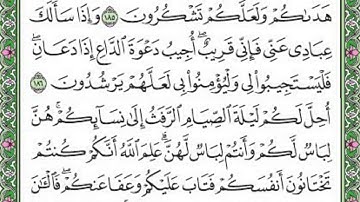 هَدَىٰكُمْ وَلَعَلَّكُمْ تَشْكُرُونَ ١٨٥ وَإِذَا سَأَلَكَ
عِبَادِى عَنِّى فَإِنِّى قَرِيبٌ ۖ أُجِيبُ دَعْوَةَ ٱلدَّاعِ إِذَا دَعَانِ ۖ
فَلْيَسْتَجِيبُوا۟ لِى وَلْيُؤْمِنُوا۟ بِى لَعَلَّهُمْ يَرْشُدُونَ ١٨٦
أُحِلَّ لَكُمْ لَيْلَةَ ٱلصِّيَامِ ٱلرَّفَثُ إِلَىٰ نِسَآئِكُمْ ۚ هُنَّ
لِبَاسٌ لَّكُمْ وَأَنتُمْ لِبَاسٌ لَّهُنَّ ۗ عَلِمَ ٱللَّهُ أَنَّكُمْ كُنتُمْ
تَخْتَانُونَ أَنفُسَكُمْ فَتَابَ عَلَيْكُمْ وَعَفَا عَنكُمْ ۖ فَٱلْـَٰٔنَ